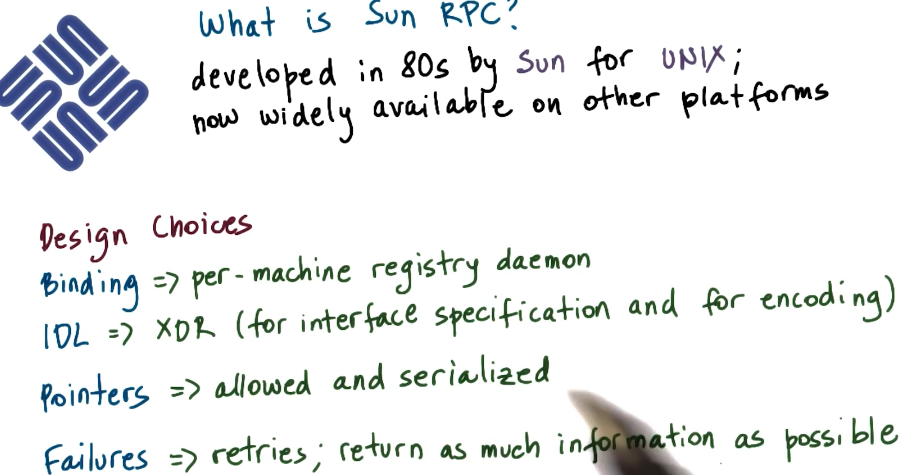 What is Sun RPC?
developed in 80s by Sun for UNIX;
now widely available on other platforms
Sun
Design Choices
Binding => per-machine registry daemon
IDL => XDR (for interface specification and for encoding)
Pointers => allowed and serialized
Failures => retries; return as much information as possible